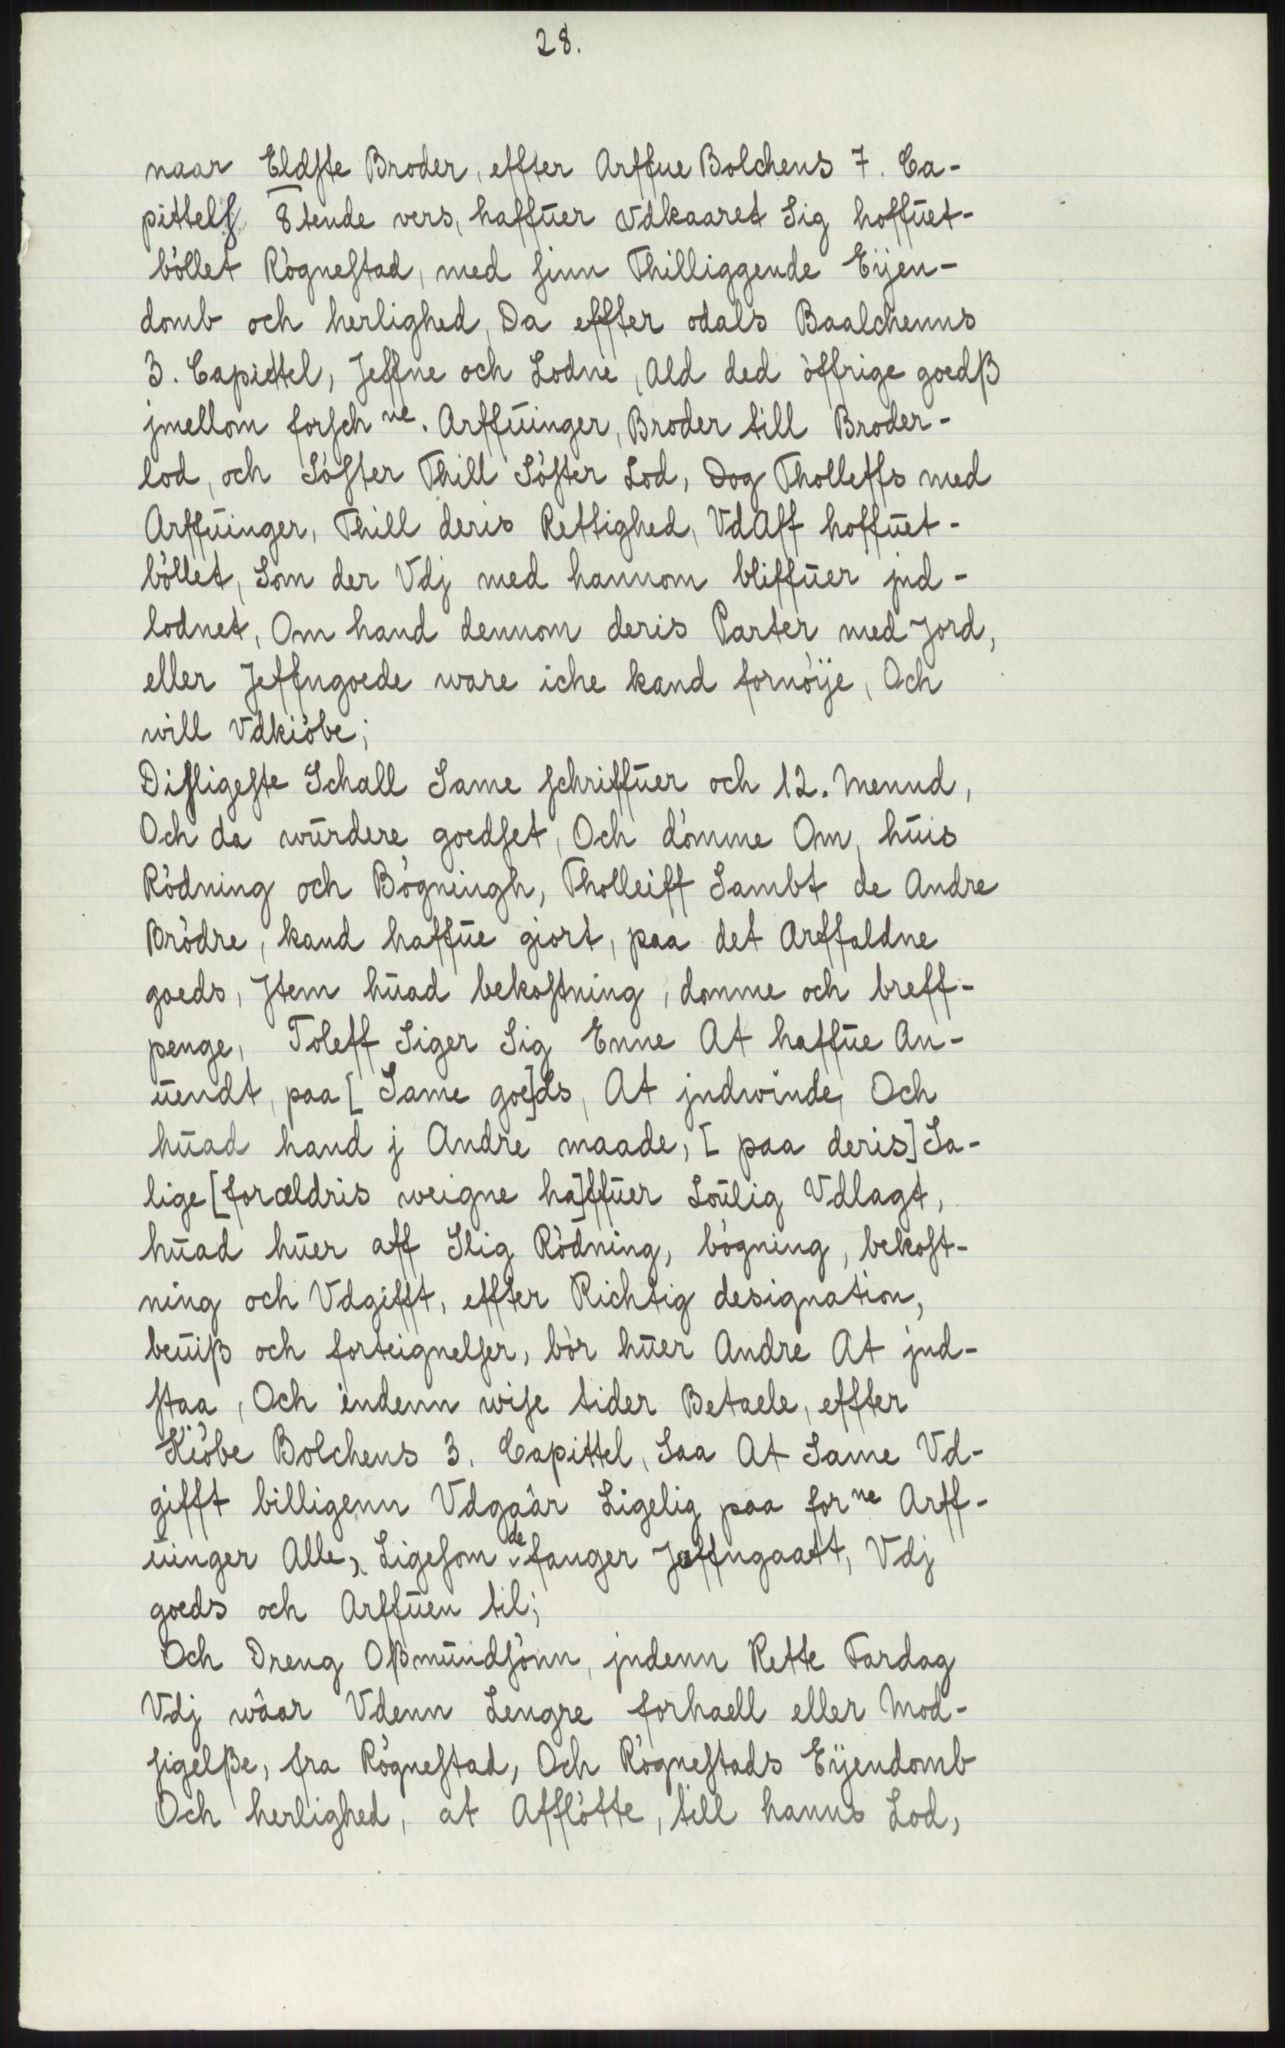 28.
naar Eldste Broder, effter Arffue Bolchens 7. Ca-
pittels 8tende vers, haffuer Vdkaaret Sig hoffuet-
böllet Rögnestad, med sinn Thilliggende Eÿen-
domb och herlighed, Da effter odals Baalchenns
3. Capittel, Jeffne och Lodne, Ald ded öffrige goedß
jmellom forsch ne. Arffuinger, Broder till Broder-
lod, och Söster Thill Söster Lod, Dog Tholleffs med
Arffuinger, Thill deris Rettighed, VdAff hoffuet-
böllet, Som der Vdj med hannom bliffuer jnd-
lodnet, Om hand dennom deris Parter med Jord,
eller Jeffngoede ware iche kand fornöÿe, Och
will Vdkiöbe;
Disligeste Schall Same schriffuer och 12. Mennd,
Och da wurdere goedset, Och dömme Om, huis
Rödning och Bögningh, Tholleiff Sambt de Andre
Brödre, kand haffue giort, paa det Arffaldne
goeds, Jtem huad bekostning, domme och breff-
penge, Toleff Siger Sig Enne At haffue An-
uendt, paa [Same goe]ds, At jndwinde, Och
huad hand j Andre maade, [paa deris] Sa-
lige [forældris weigne ha]ffuer Loulig Vdlagt,
huad huer aff Slig Rödning, bögning, bekost-
ning och Vdgifft, effter Richtig designation,
beuiß och forteignelser, bör huer Andre At jnd-
staa, Och indenn wise tider Betaele, effter
Kiöbe Bolchens 3. Capittel, Saa At Same Vd-
gifft billigenn Vdgaar Ligelig paa for ne Arff-
uinger Alle, Ligesom de fanger Jeffngaatt, Vdj
goeds och Arffuen til;
Och Dreng Oßmundsönn, jndenn Rette Fardag
Vdj wåar Vdenn Lengre forhaell eller Mod-
sigelße, fra Rögnestad, Och Rögnestads Eÿendomb
Och herlighed, at Afflötte, till hanns Lod,